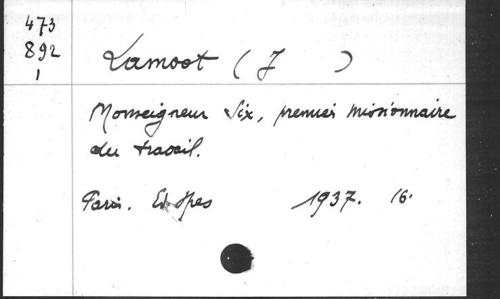 473
892
1
Lamoot (J )
Monseigneur Six, premier missionnaire
du travail.
Paris. Ed Spes 1937. 16.